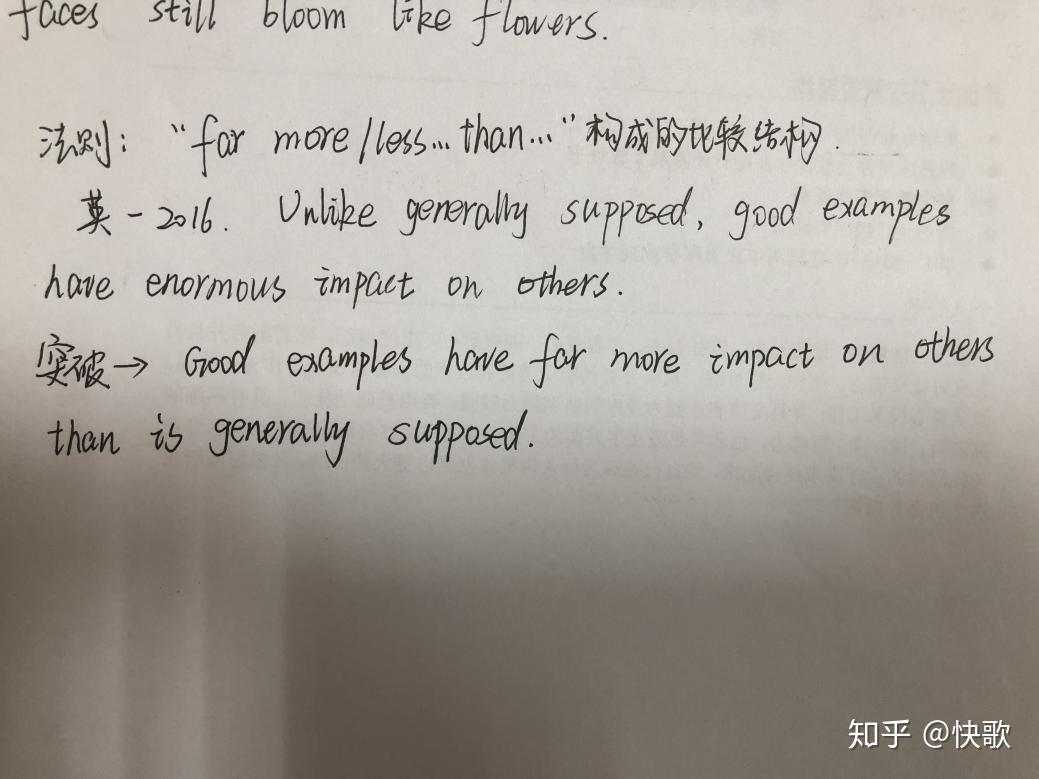 faces still bloom like flowers.
法则：“far more/less...than...”构成的比较结构.
英一2016. Unlike generally supposed, good examples
have enormous impact on others.
突破→ Good examples have far more impact on others
than is generally supposed.
知乎 @快歌